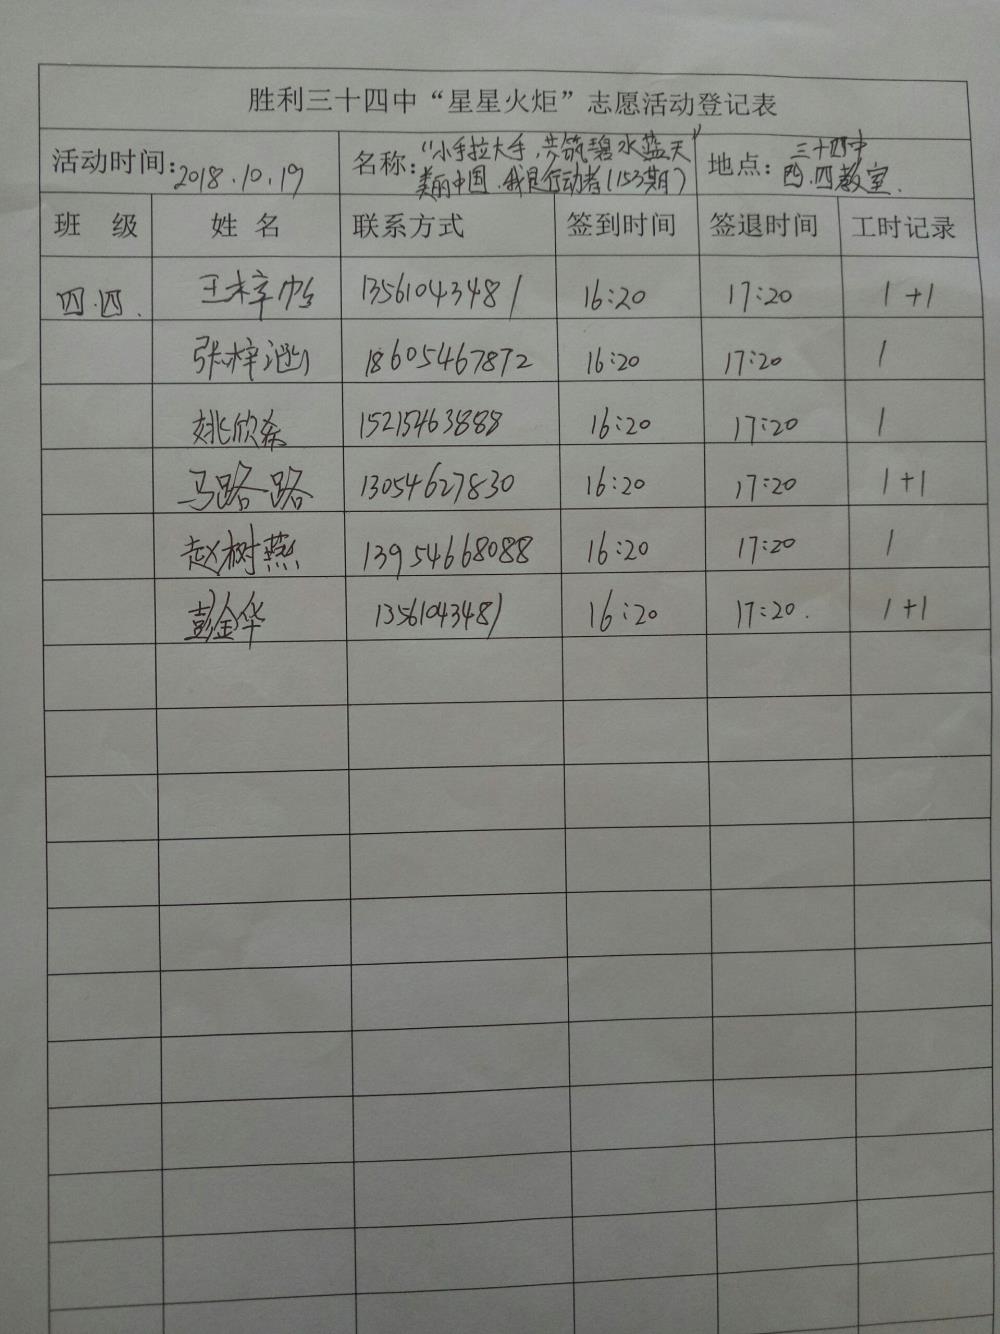 胜利三十四中“星星火炬”志愿活动登记表
活动时间：2018.10.19 名称：“小手拉大手，共筑碧水蓝天” 地点：三十四中
美丽中国，我是行动者（153期） 四.四教室.
班 级 姓 名 联系方式 签到时间 签退时间 工时记录
四.四. 王梓 13561043481 16:20 17:20 1+1
张梓涵 18605467872 16:20 17:20 1
姚欣希 15215463888 16:20 17:20 1
马路路 13054627830 16:20 17:20 1+1
赵树燕 13954668088 16:20 17:20 1
彭金华 13561043481 16:20 17:20. 1+1